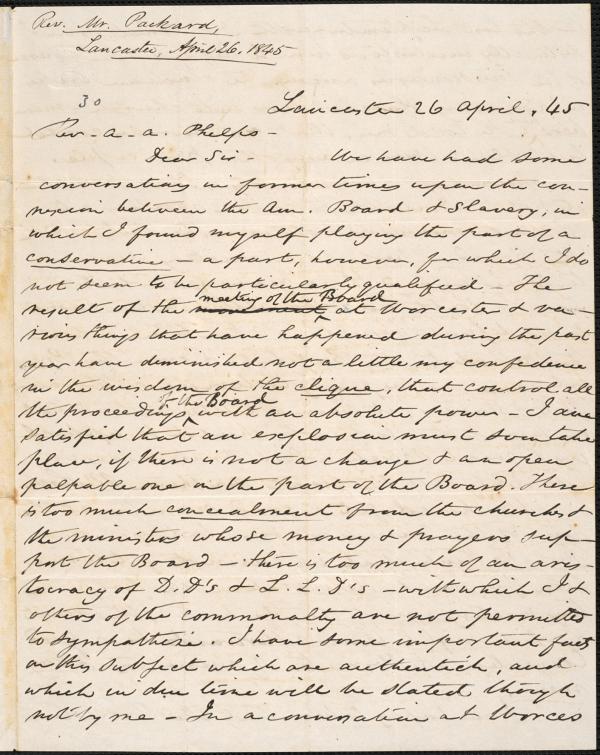 Rev. Mr. Packard,
Lancaster, April 26, 1845
30
Lancaster 26 April, 45
Rev. A. A. Phelps -
Dear Sir - We have had some
conversations in former times upon the con-
nexion between the Am. Board & Slavery, in
which I found myself playing the part of a
conservative - a part, however, for which I do
not seem to be particularly qualified - The
result of the meeting of the Board at Worcester & va-
rious things that have happened during the past
year have diminished not a little my confidence
in the wisdom of the clique, that control all
the proceedings of the Board with an absolute power - I am
satisfied that an explosion must soon take
place, if there is not a change & an open
palpable one on the part of the Board. There
is too much concealment from the churches &
the ministers whose money & prayers sup-
port the Board - there is too much of an aris-
tocracy of D.D's & L.L.D's - with which I &
others of the commonalty are not permitted
to sympathise. I have some important facts
on this subject which are authentick, and
which in due time will be stated though
not by me - In a conversation at Worces